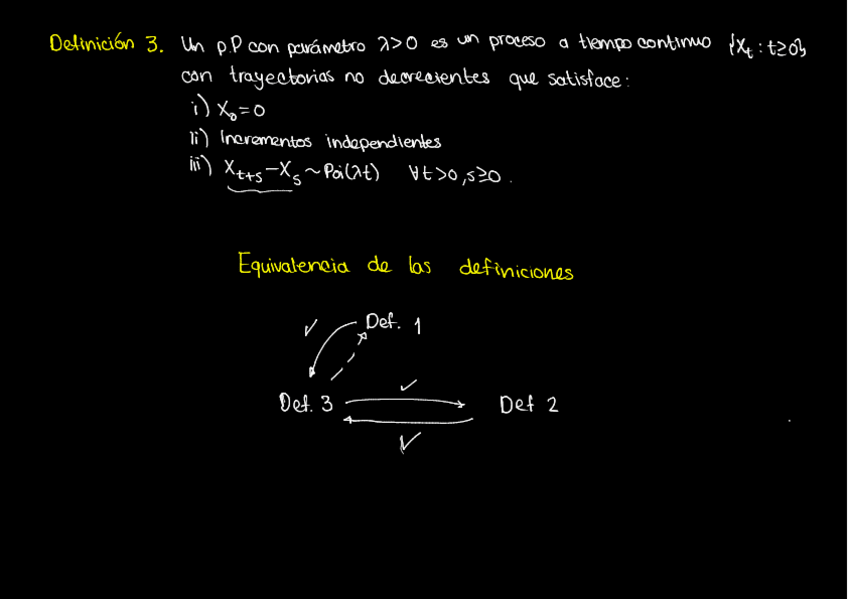 Definición 3. Un p.P con parámetro λ>0 es un proceso a tiempo continuo {X_t : t≥0}
con trayectorias no decrecientes que satisface:
i) X_0=0
ii) Incrementos independientes
iii) X_{t+s}-X_s ~ Poi(λt) ∀t>0, s≥0.
Equivalencia de las definiciones
Def. 1
Def. 3
Def 2